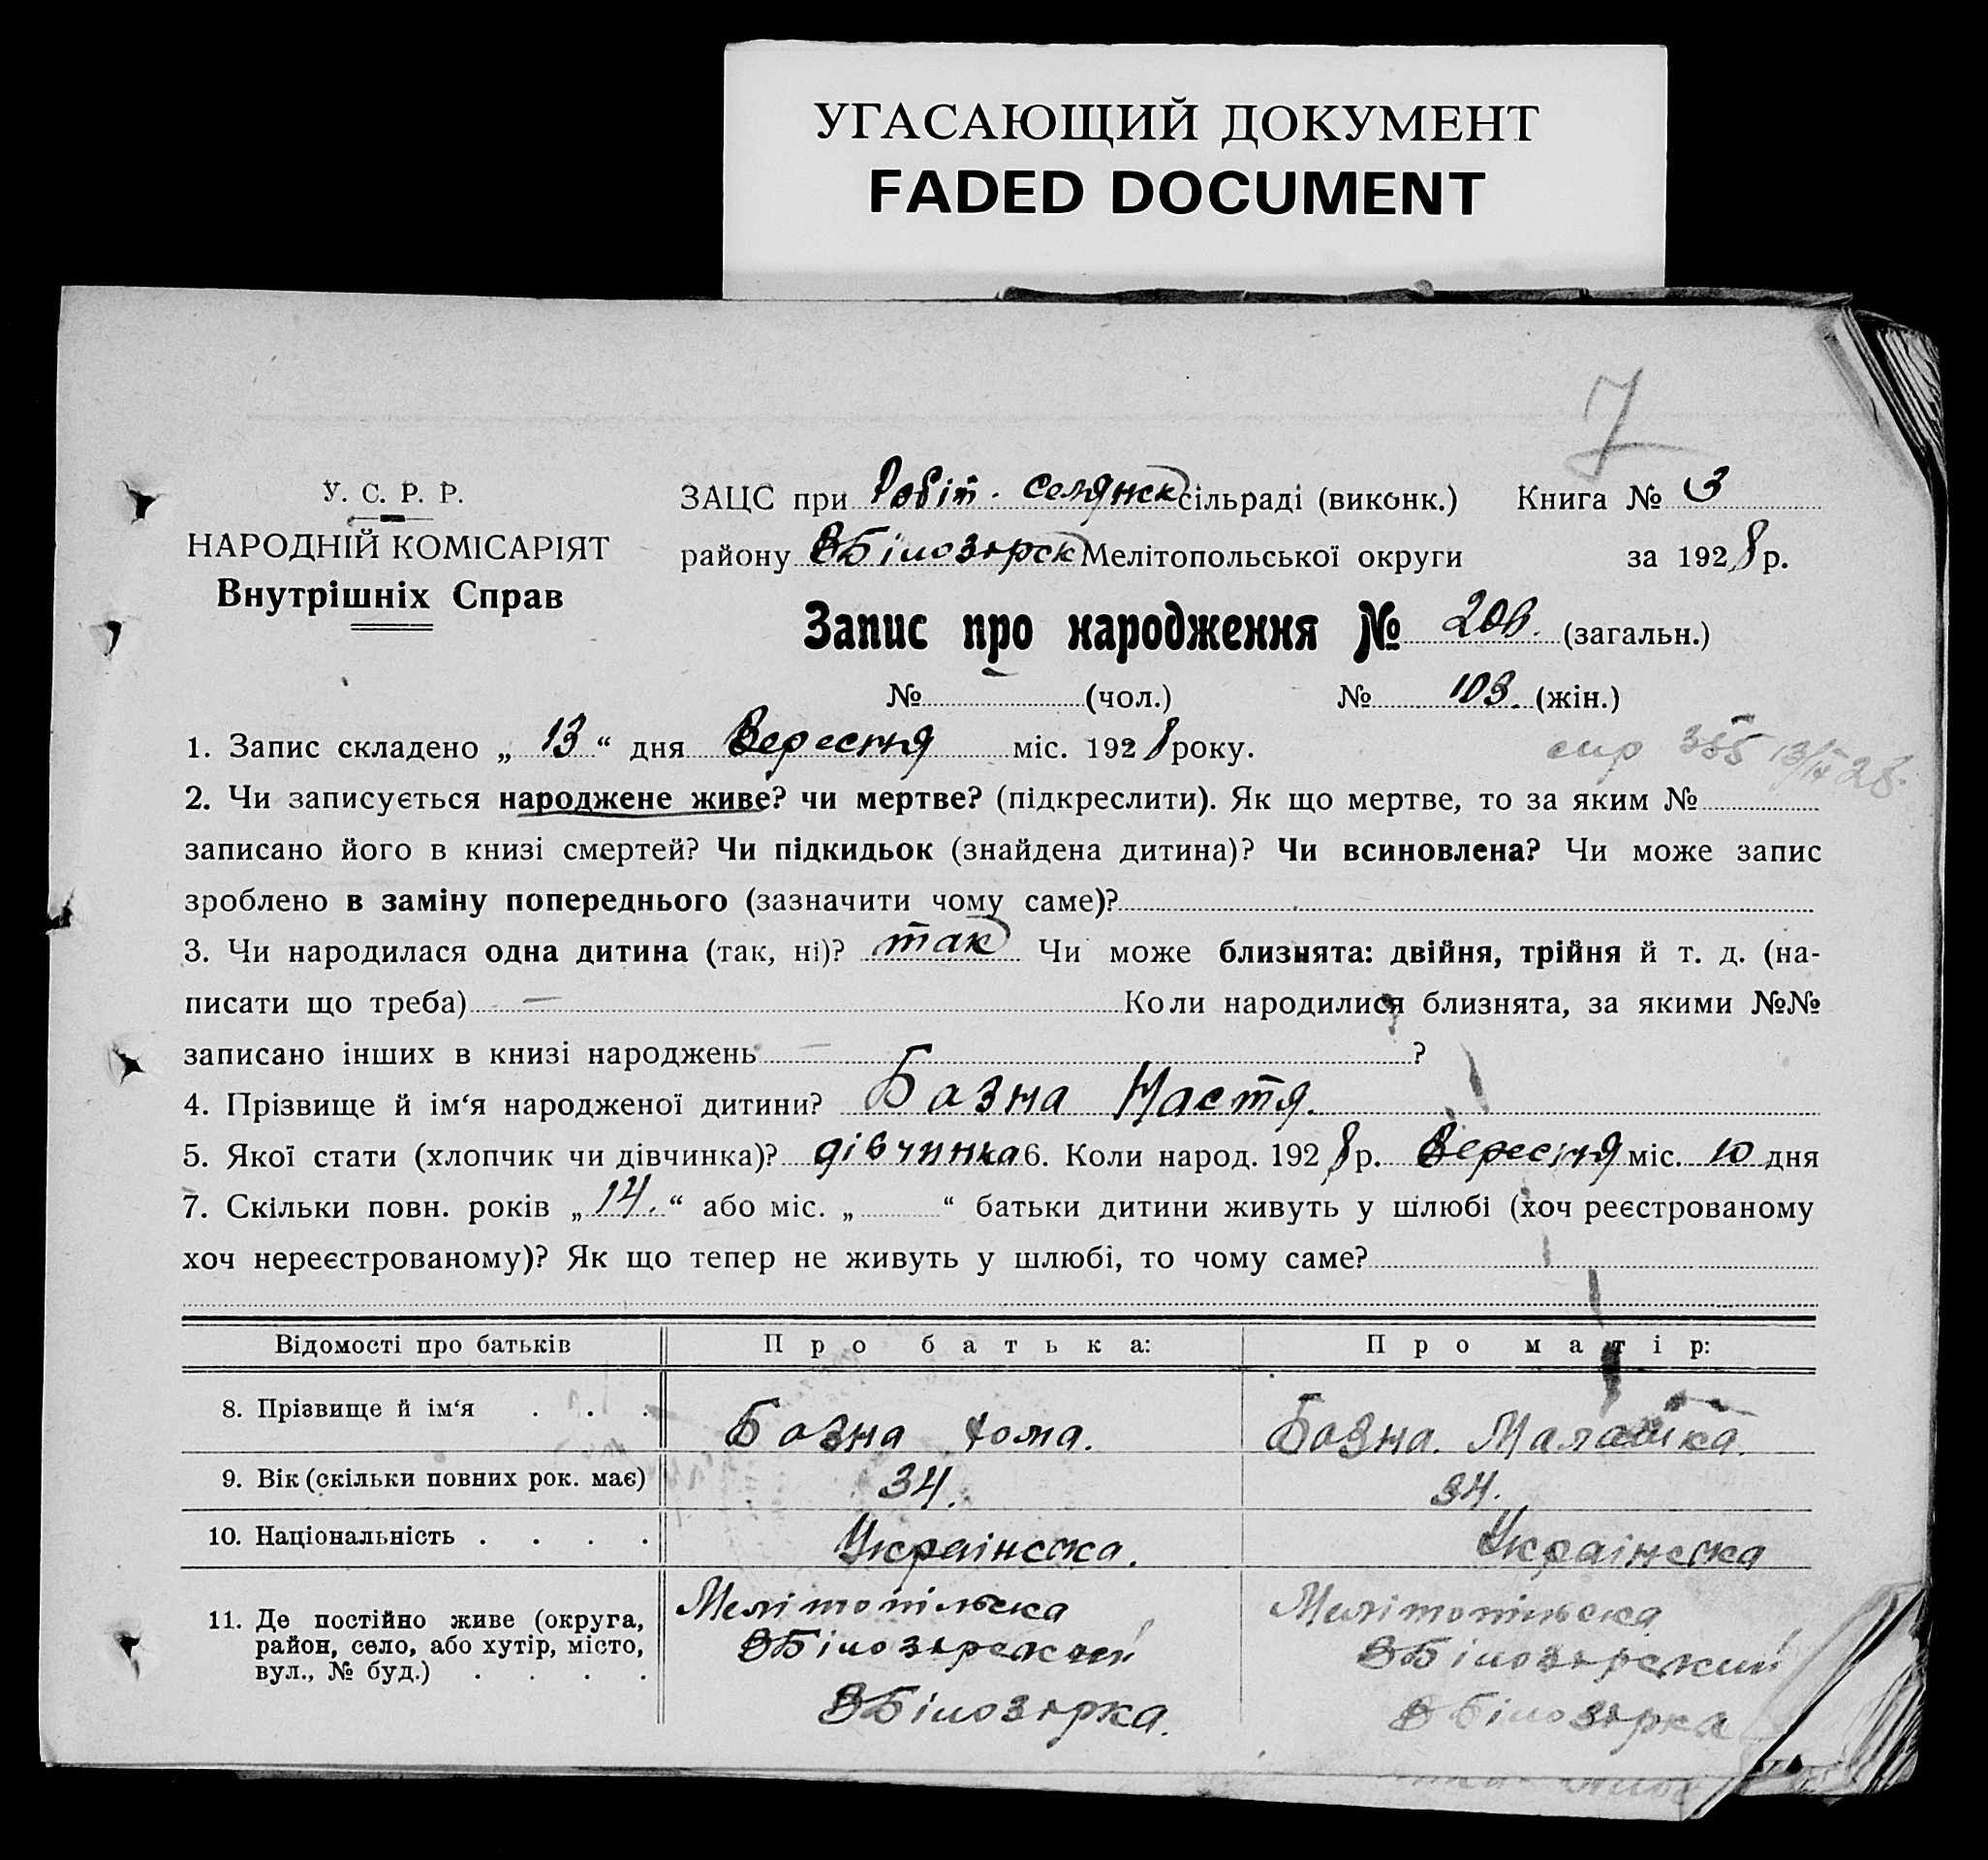 УГАСАЮЩИЙ ДОКУМЕНТ
FADED DOCUMENT
7
У. С. Р. Р.
НАРОДНІЙ КОМІСАРІЯТ
Внутрішніх Справ
ЗАЦС при Робіт. селянск сільраді (виконк.) Книга № 3
району ВБілозірск Мелітопольської округи за 1928 р.
Запис про народження № 206. (загальн.)
№ (чол.) № 103. (жін.)
1. Запис складено „ 13 “ дня Вересня міс. 1928 року.
спр 355 13/IX 28.
2. Чи записується народжене живе? чи мертве? (підкреслити). Як що мертве, то за яким №
записано його в книзі смертей? Чи підкидьок (знайдена дитина)? Чи всиновлена? Чи може запис
зроблено в заміну попереднього (зазначити чому саме)?
3. Чи народилася одна дитина (так, ні)? так Чи може близнята: двійня, трійня й т. д. (на-
писати що треба) — Коли народилися близнята, за якими №№
записано інших в книзі народжень — ?
4. Прізвище й ім‘я народженої дитини? Базна Настя.
5. Якої стати (хлопчик чи дівчинка)? дівчинка 6. Коли народ. 1928 р. Вересня міс. 10 дня
7. Скільки повн. років „ 14. “ або міс. „ “ батьки дитини живуть у шлюбі (хоч реєстрованому
хоч нереєстрованому)? Як що тепер не живуть у шлюбі, то чому саме?
Відомості про батьків Про батька: Про матір:
8. Прізвище й ім‘я . . . Базна Хома. Базна. Малашка.
9. Вік (скільки повних рок. має) 34. 34.
10. Національність . . . . Українска. Українска
11. Де постійно живе (округа, район, село, або хутір, місто, вул., № буд.) . . . .
Мелітопільска Мелітопільска
ВБілозірский ВБілозірский
ВБілозірка. ВБілозірка